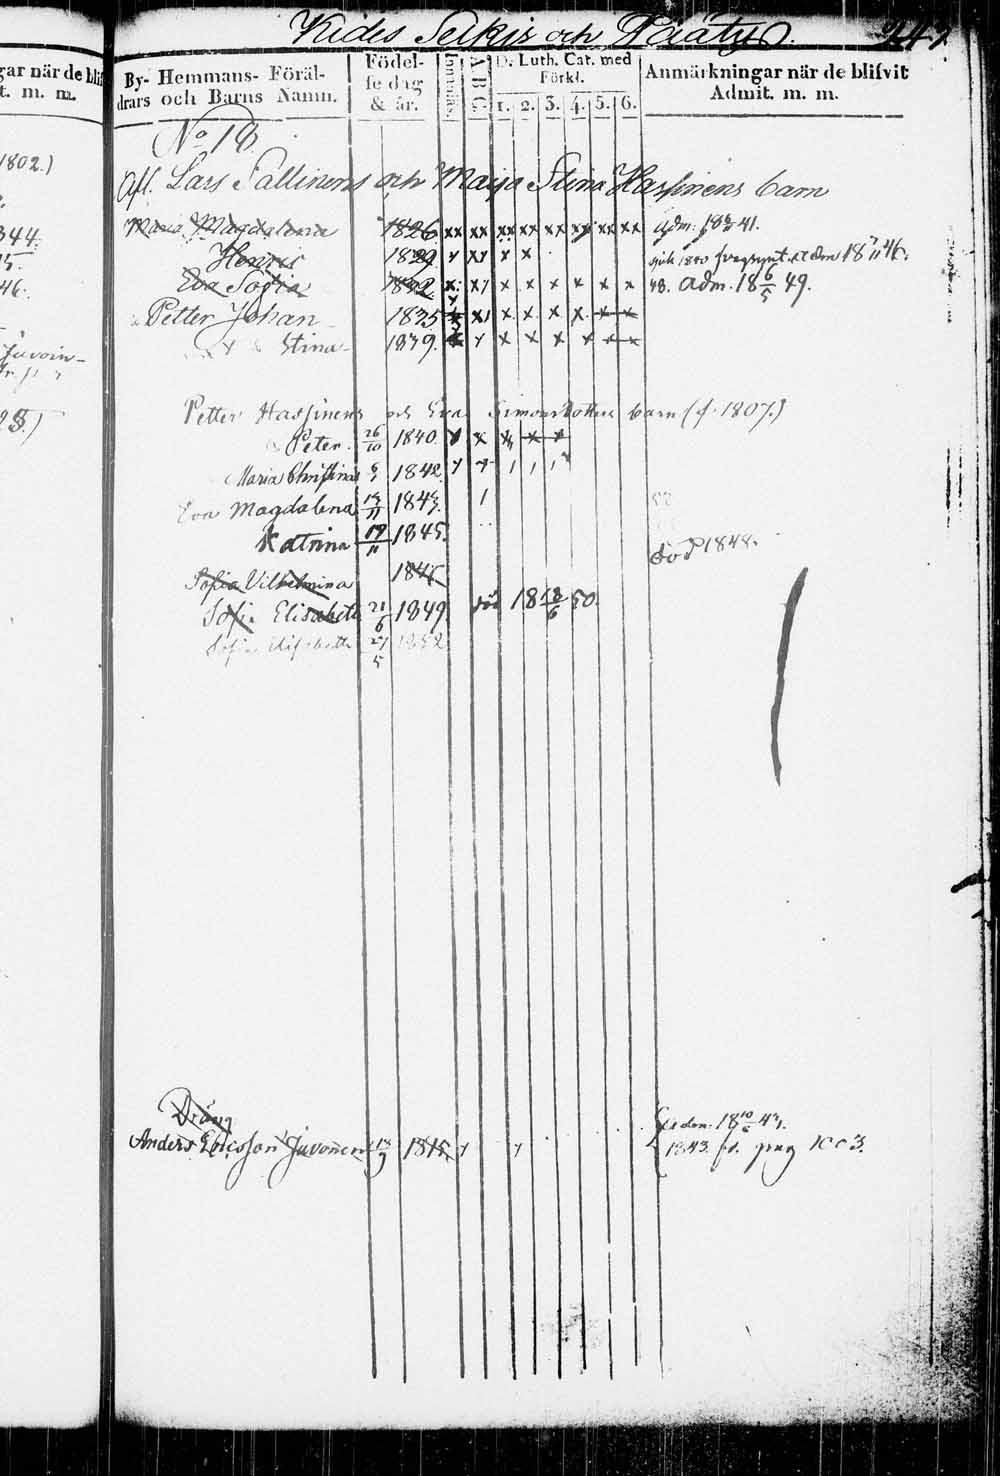 Kides Selkis och Pääty
247
gar när de blif
t. m. m.
1802.)
344.
15.
46.
Juvoin-
By- Hemmans- Föräl-
drars och Barns Namn.
Födel-
se dag
& år.
Innanläs.
A B C.
D. Luth. Cat. med
Förkl.
1. 2. 3. 4. 5. 6.
Anmärkningar när de blifvit
Admit. m. m.
No 18.
Afl. Lars Pallinens och Maija Stina Hassinens barn
Maria Magdalena 1826 xx xx xx xx xx xx xx xx Adm. 41.
Henric 1829 x xx x x 46.
Eva Sofia 1832 x x x x x x x x 48. Adm. 18 6/5 49.
Petter Johan 1835 x x x x x x x x
Stina 1839. x x x x x x x x
Petter Hassinens och Eva Simonsdotters barn (f. 1807.)
Peter 26/10 1840. x x x x x
Maria Christina 1842
Eva Magdalena 1843.
Katrina 19/11 1845.
död 1848.
Sofia Vilhelmina 1848
Sofia Elisabeth 21/6 1849 död 18 18/6 50.
Sofia Elisabeth 27/5 1852
Dräng
Anders Ericsson Juvonen 1815
18 10/6 43.
1843.